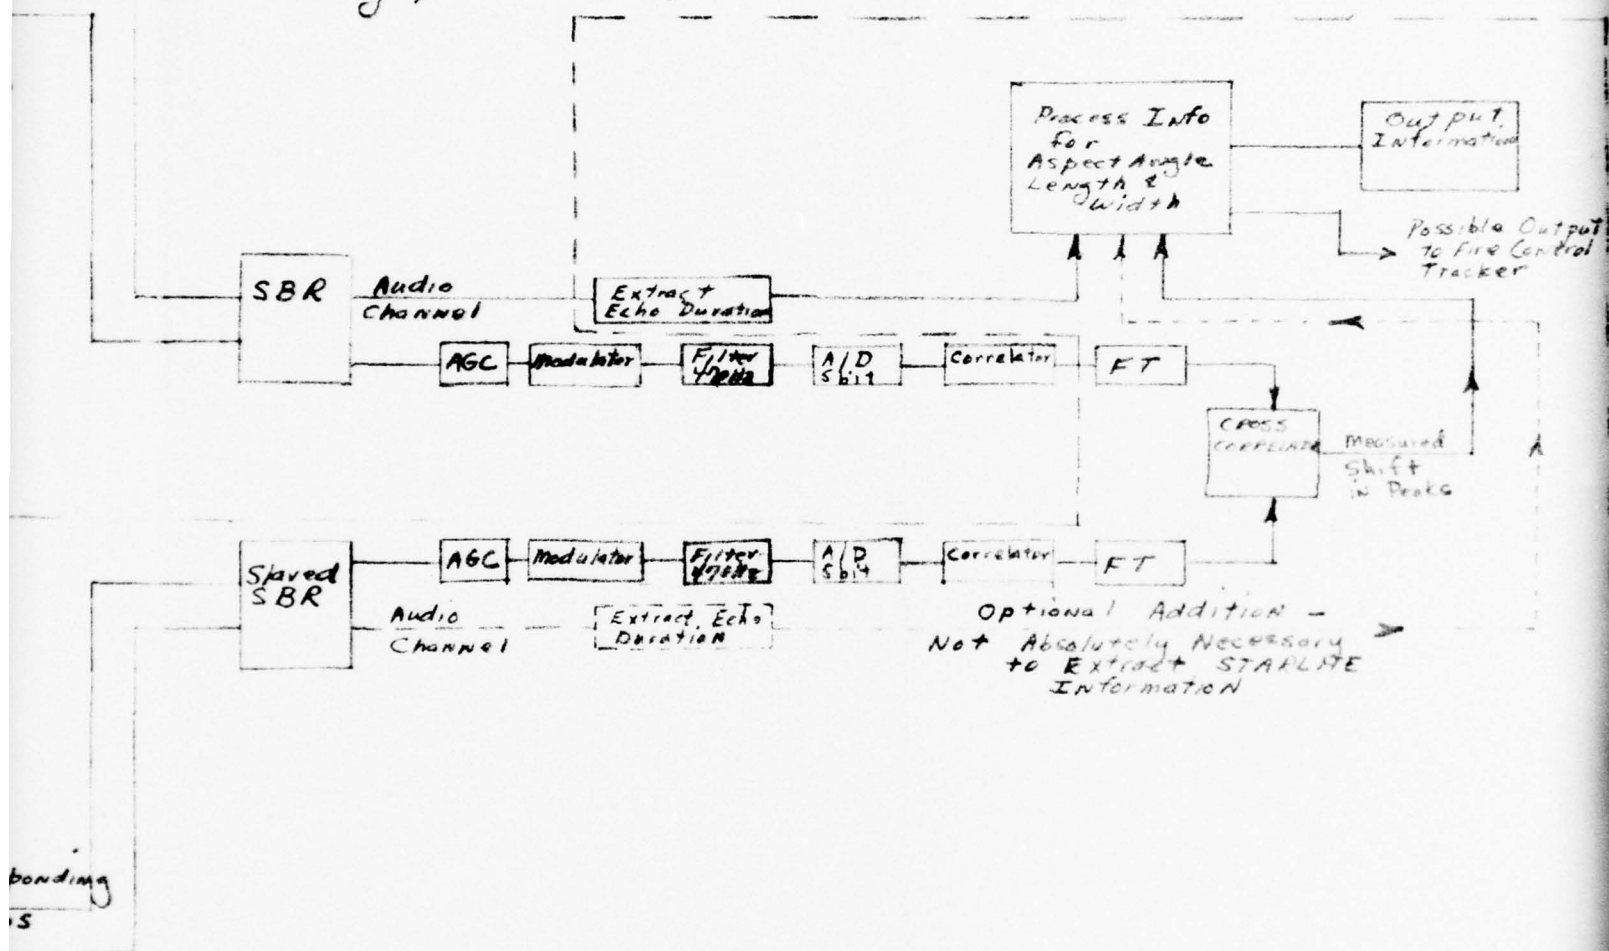 Process Info
for
Aspect Angle
Length &
Width
Output
Information
Possible Output
to Fire Control
Tracker
SBR
Audio
Channel
Extract
Echo Duration
AGC
Modulator
Filter
A/D
5 bit
Correlator
FT
CROSS
CORRELATOR
Measured
Shift
in Peaks
Slaved
SBR
AGC
Modulator
Filter
A/D
5 bit
Correlator
FT
Audio
Channel
Extract Echo
Duration
Optional Addition -
Not Absolutely Necessary
to Extract STARLITE
Information